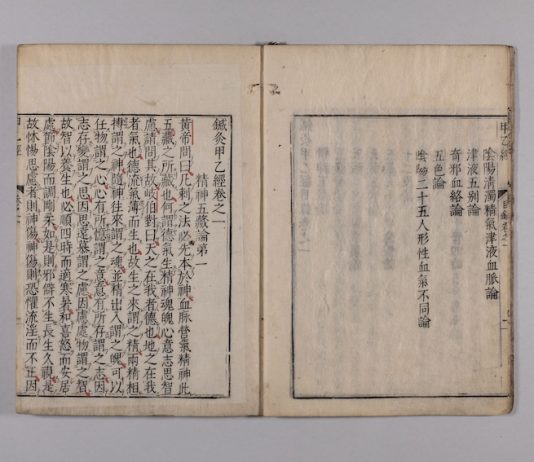 甲乙經
陰陽清濁精氣津液血脉論
津液五別論
奇邪血絡論
五色論
陰陽二十五人形性血氣不同論
鍼灸甲乙經卷之一
精神五藏論第一
黃帝問曰凡刺之法必先本於神血脉營氣精神此
五藏之所藏也何謂德氣生精神魂魄心意志思智
慮請問其故岐伯對曰天之在我者德也地之在我
者氣也德流氣薄而生也故生之來謂之精兩精相
搏謂之神隨神往來謂之魂並精出入謂之魄可以
任物謂之心心有所憶謂之意意有所存謂之志因
志存變謂之思因思遠慕謂之慮因慮處物謂之智
故智以養生也必順四時而適寒暑和喜怒而安居
處節陰陽而調剛柔如是則邪僻不生長生久視是
故怵惕思慮者則神傷神傷則恐懼流淫而不正因
甲乙經